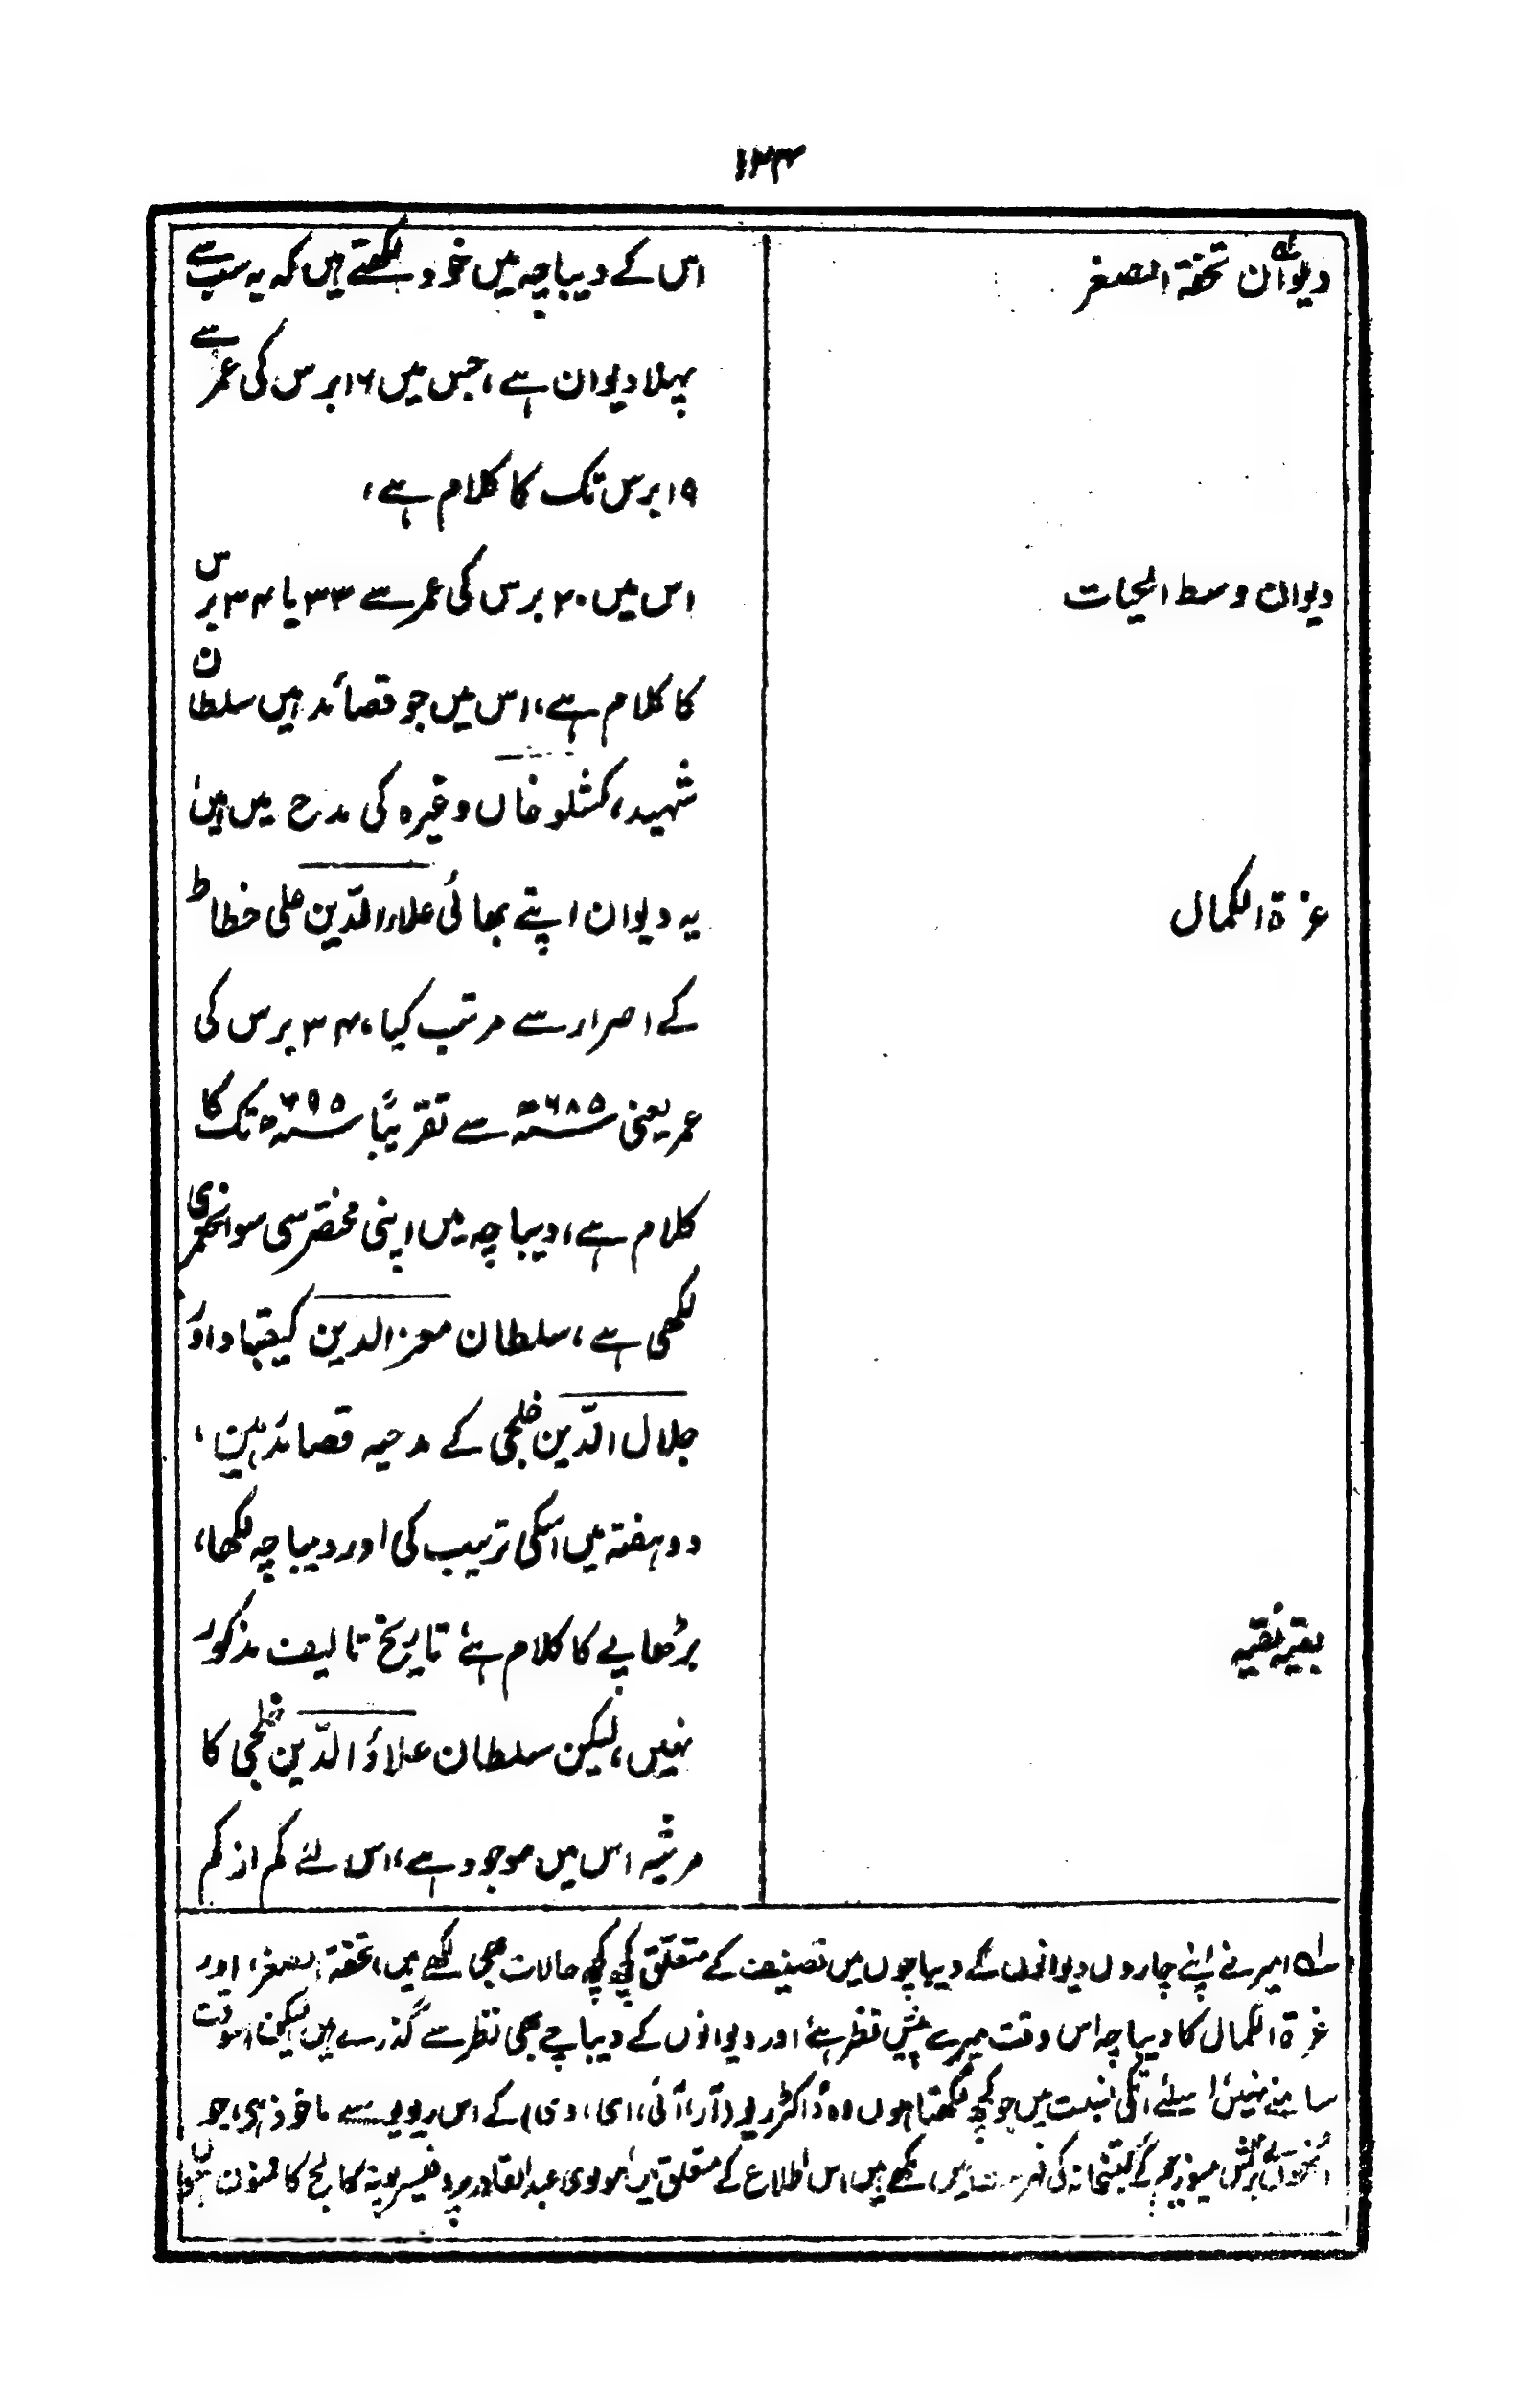 ۱۳۴
دیوان تحفۃ الصغر
اس کے دیباچہ میں خود لکھتے ہیں کہ یہ سب سے
پہلا دیوان ہے، جس میں ۱۶ برس کی عمر سے
۱۹ برس تک کا کلام ہے،
دیوان وسط الحیات
اس میں ۲۰ برس کی عمر سے ۳۳ یا ۳۴ برس
کا کلام ہے، اس میں جو قصائد ہیں سلطان
شہید، کشلو خاں وغیرہ کی مدح میں ہیں
غرۃ الکمال
یہ دیوان اپنے بھائی علاء الدّین علی خطاط
کے اصرار سے مرتب کیا، ۳۴ برس کی
عمر یعنی ۶۸۵ھ سے تقریباً ۶۹۵ھ تک کا
کلام ہے، دیباچہ میں اپنی مختصر سی سوانحعمری
لکھی ہے، سلطان معز الدین کیقباد اور
جلال الدّین خلجی کے مدحیہ قصائد ہین،
دو ہفتہ میں اسکی ترتیب کی اور دیباچہ لکھا،
بقیہ نقیہ
بڑھاپے کا کلام ہے تاریخ تالیف مذکور
نہیں، لیکن سلطان علاؤ الدّین خلجی کا
مرثیہ اس میں موجود ہے، اس لئے کم از کم
لہ امیر نے اپنے چاروں دیوانوں کے دیباچوں میں تصنیف کے متعلق کچھ کچھ حالات بھی لکھے ہیں، تحفۃ الصغر، اور
غرۃ الکمال کا دیباچہ اس وقت میرے پیش نظر ہے اور دیوانوں کے دیباچے بھی نظر سے گذرے ہیں لیکن اسوقت
سامنے نہیں اسلئے انکی نسبت میں جو کچھ لکھتا ہوں وہ ڈاکٹر ریو (آر، آئی، ای، ڈی) کے اس ریویو سے ماخوذ ہی، جو
انھوں نے برٹش میوزیم کے کتبخانہ کی فہرست میں لکھے ہیں، اس اطلاع کے متعلق میں مولوی عبد القادر پروفیسر پونہ کالج کا ممنون ہوں